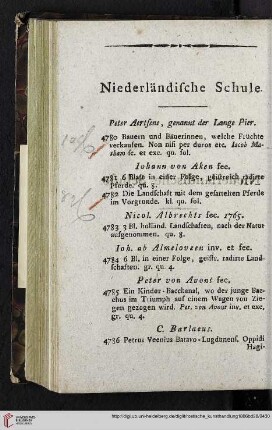 Niederländische Schule.
Peter Aertsens, genannt der Lange Pier.
4780 Bauern und Bäuerinnen, welche Früchte
verkaufen. Non nisi per duron etc. Iacob Ma-
tham sc. et exc. qu. fol.
Iohann von Aken fec.
4781 6 Blatt in einer Folge, geistreich radirte
Pferde. qu. 8.
4782 Die Landschaft mit dem gesattelten Pferde
im Vorgrunde. kl. qu. fol.
Nicol. Albrechts fec. 1765.
4783 3 Bl. holländ. Landschaften, nach der Natur
aufgenommen. qu. 8.
Ioh. ab Almeloveen inv. et fec.
4784 6 Bl. in einer Folge, geistr. radirte Land-
schaften. gr. qu. 4.
Peter von Avont fec.
4785 Ein Kinder-Bacchanal, wo der junge Bac-
chus im Triumph auf einem Wagen von Zie-
gen gezogen wird. Pet. von Avont inv. et exc.
gr. qu. 4.
C. Barlaeus.
4786 Petrus Veenius Batavo-Lugdunens. Oppidi
Hagi-